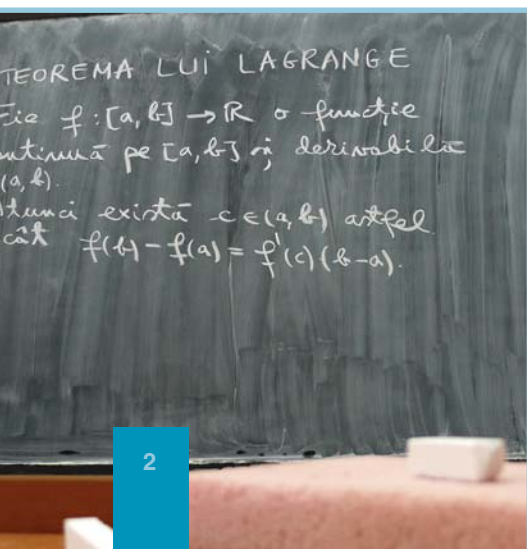 TEOREMA LUI LAGRANGE
Fie f : [a, b] → ℝ o funcție
ntinuă pe [a, b] și derivabilă
(a, b).
tunci există c ∈ (a, b) astfel
cât f(b) − f(a) = f'(c)(b−a).
2